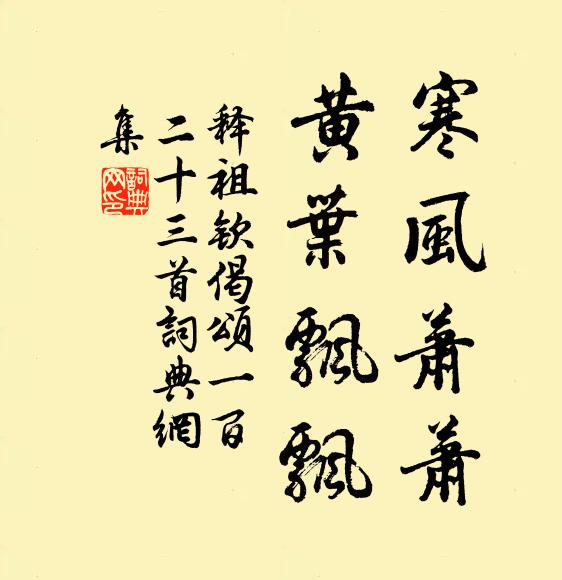 寒風蕭蕭
黃葉飄飄
释祖欽偈頌一百
二十三首詞典網
集
詞典
网印